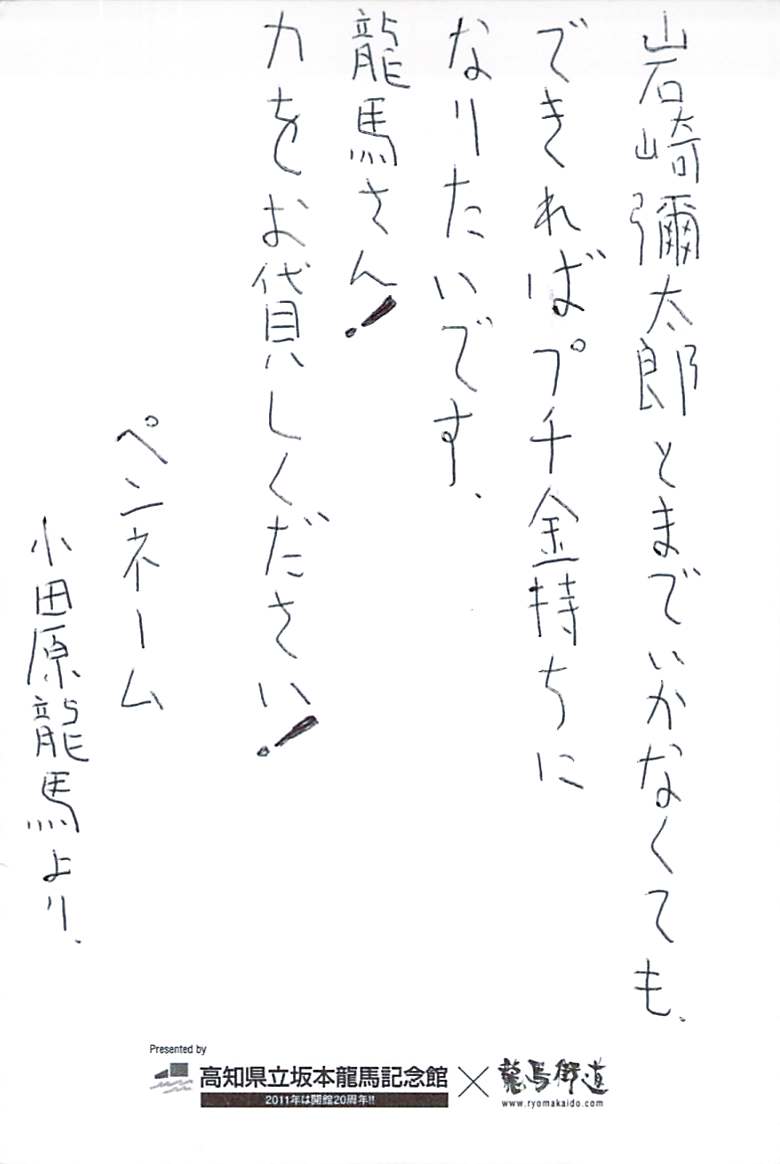 岩崎彌太郎とまでいかなくても、
できればプチ金持ちに
なりたいです、
龍馬さん!
力をお貸しください!
ペンネーム
小田原龍馬より、
Presented by
高知県立坂本龍馬記念館
2011年は開館20周年!!
×
龍馬街道
www.ryomakaido.com